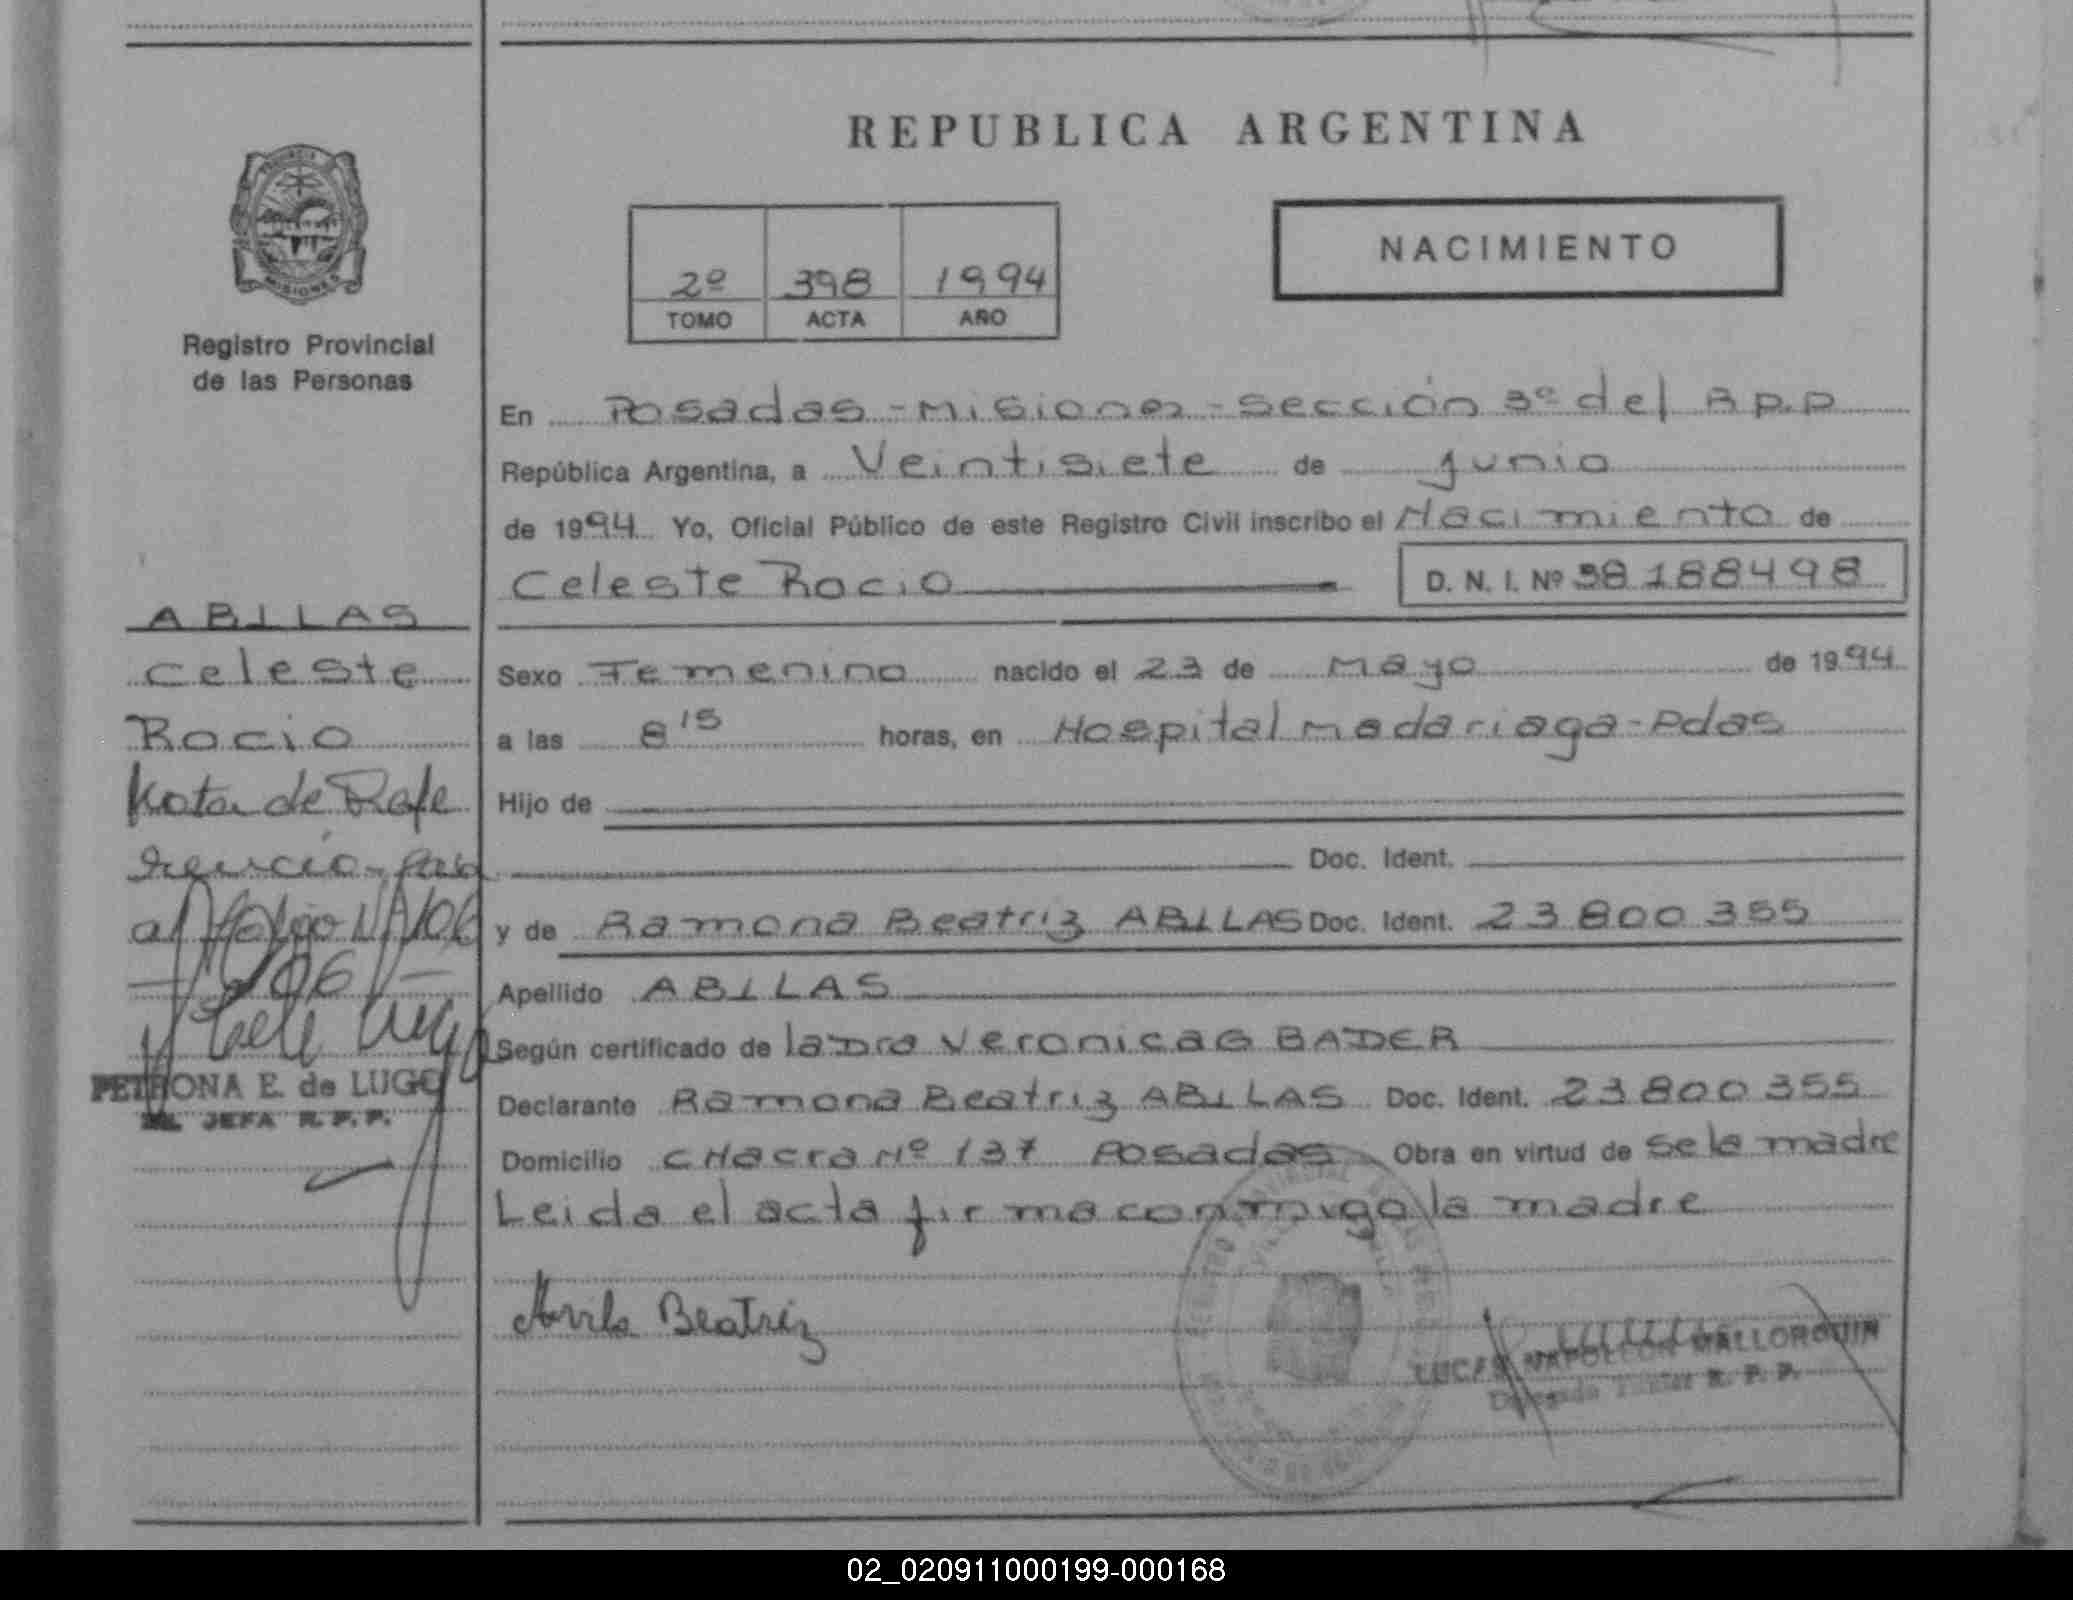 REPUBLICA ARGENTINA
NACIMIENTO
2º 398 1994
TOMO ACTA AÑO
PROVINCIA
MISIONES
Registro Provincial
de las Personas
ABILLAS
Celeste
Rocio
Nota de Refe
rencia
PETRONA E. de LUGO
JEFA R. P. P.
En Posadas - Misiones - Sección 3º del R P. P
República Argentina, a Veintisiete de junio
de 1994 Yo, Oficial Público de este Registro Civil inscribo el Nacimiento de
Celeste Rocio D. N. I. Nº 38.188498
Sexo Femenino nacido el 23 de Mayo de 1994
a las 8 15 horas, en Hospital Madariaga - Pdas
Hijo de
Doc. Ident.
y de Ramona Beatriz ABILLAS Doc. Ident. 23800355
Apellido ABILLAS
Según certificado de la Dra Veronica G BADER
Declarante Ramona Beatriz ABILLAS Doc. Ident. 23800355
Domicilio CHacra Nº 137 Posadas Obra en virtud de Se la madre
Leida el acta firma conmigo la madre
Beatriz
LUCAS NAPOLEON MALLORQUIN
R. P. P.
02_020911000199-000168